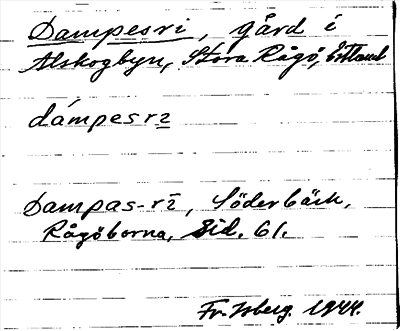 Dampesri, gård i
Alskogbyn, Stora Rågö, Estland
dámpesrı
Dampas-rī, Söderbäck,
Rågöborna, sid. 61.
Fr. Isberg. 1944.